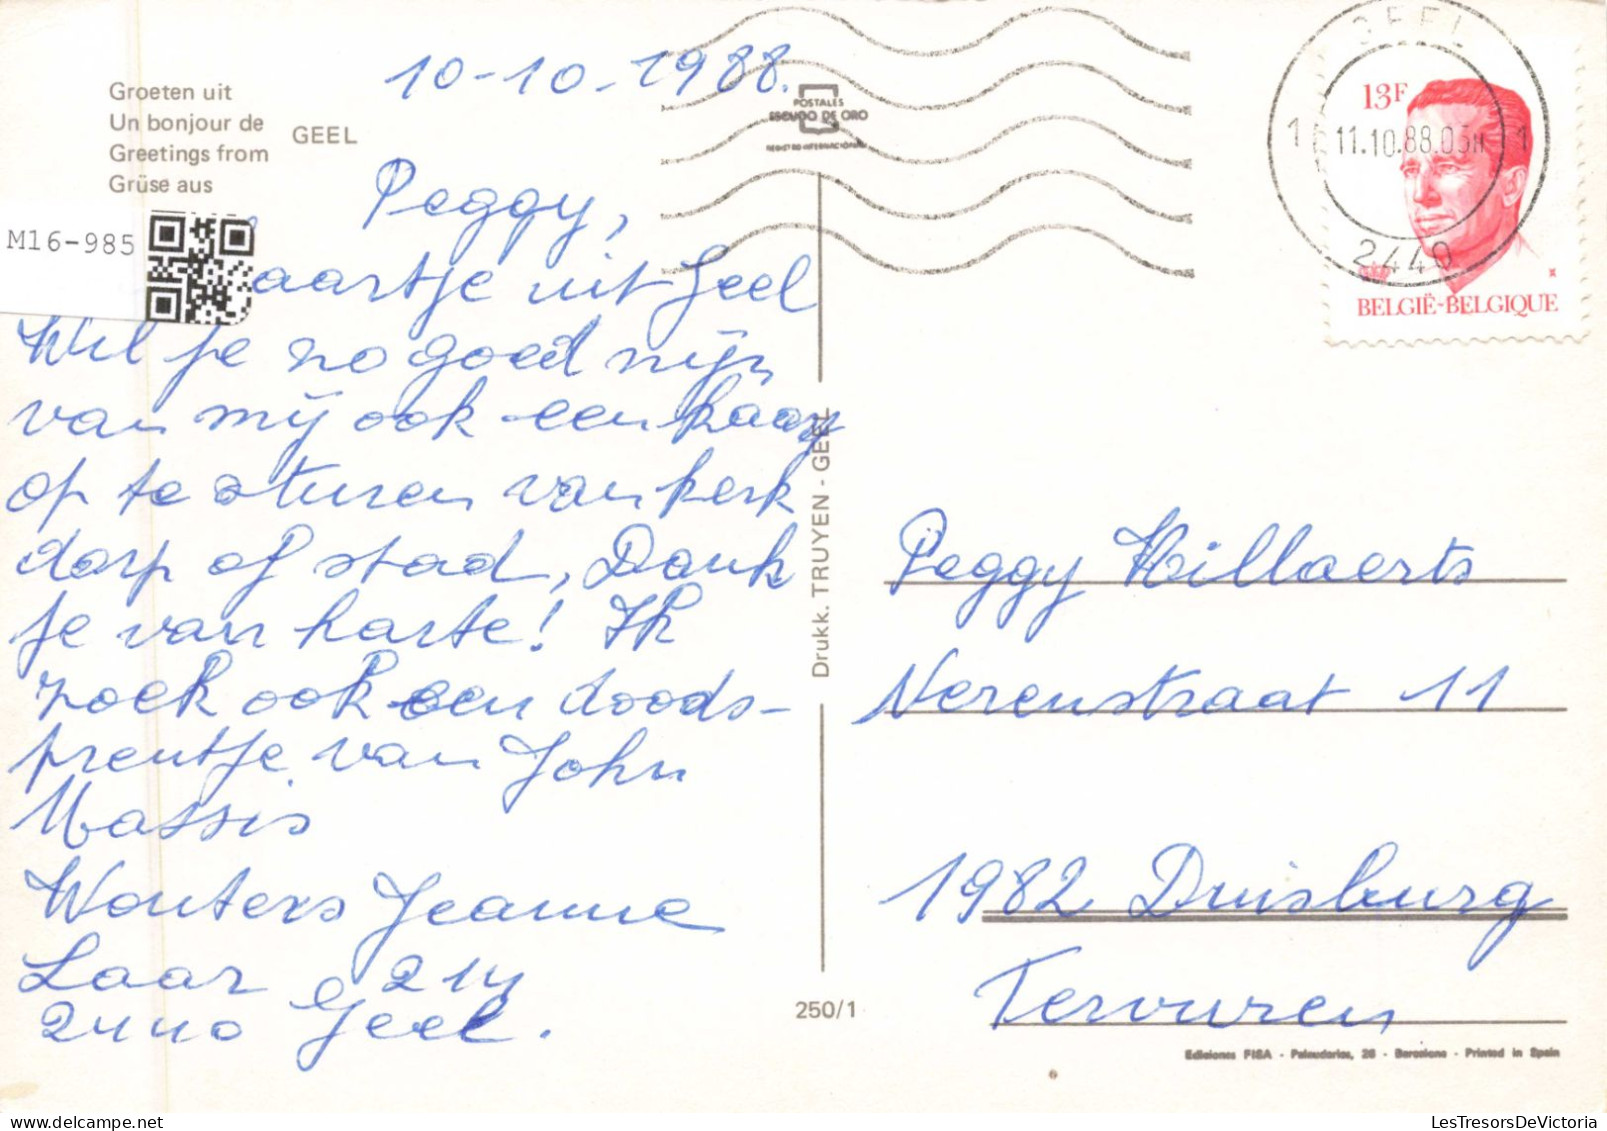 Groeten uit
Un bonjour de
Greetings from
Grüse aus
GEEL
10-10-1988.
POSTALES
ESCUDO DE ORO
REGISTRO INTERNACIONAL
GEEL
1 11.10.88.05H 1
2440
13F
BELGIË-BELGIQUE
M16-985
Peggy,
aartje uit Geel
Wil je zo goed zijn
van mij ook een kaart
op te sturen van kerk
dorp of stad, Dank
je van harte! Ik
zoek ook een doods-
prentje van John
Massis
Wouters Jeanne
Laar 214
2440 Geel.
Drukk. TRUYEN - GEEL
250/1
Peggy Hillaerts
Nerenstraat 11
1982 Duisburg
Tervuren
Ediciones FISA - Palaudarias, 26 - Barcelona - Printed in Spain
6
LesTresorsDeVictoria.com